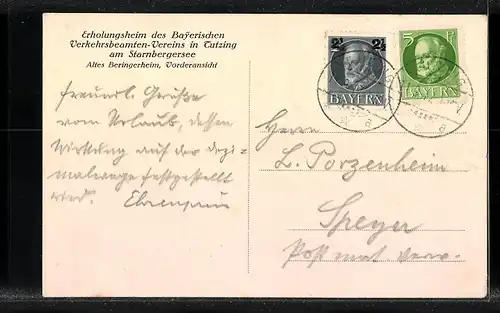 Erholungsheim des Bayerischen
Verkehrsbeamten-Vereins in Tutzing
am Starnbergersee
Altes Beringerheim, Vorderansicht
2½ 2½
BAYERN
5 Pf
BAYERN
a
a
freundl. Grüße
vom Urlaub, dessen
Wirkung auf der Dezi-
malwage festgestellt
wird.
Herrn
L. Porzenheim
Speyer
Post